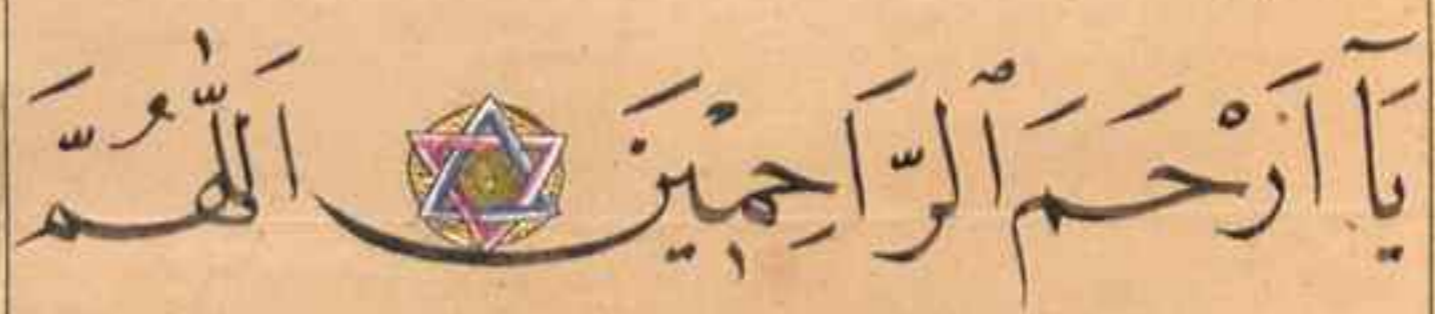 يَآ اَرْحَمَ ٱلرَّاحِمِيْنَ اَللّٰهُمَّ